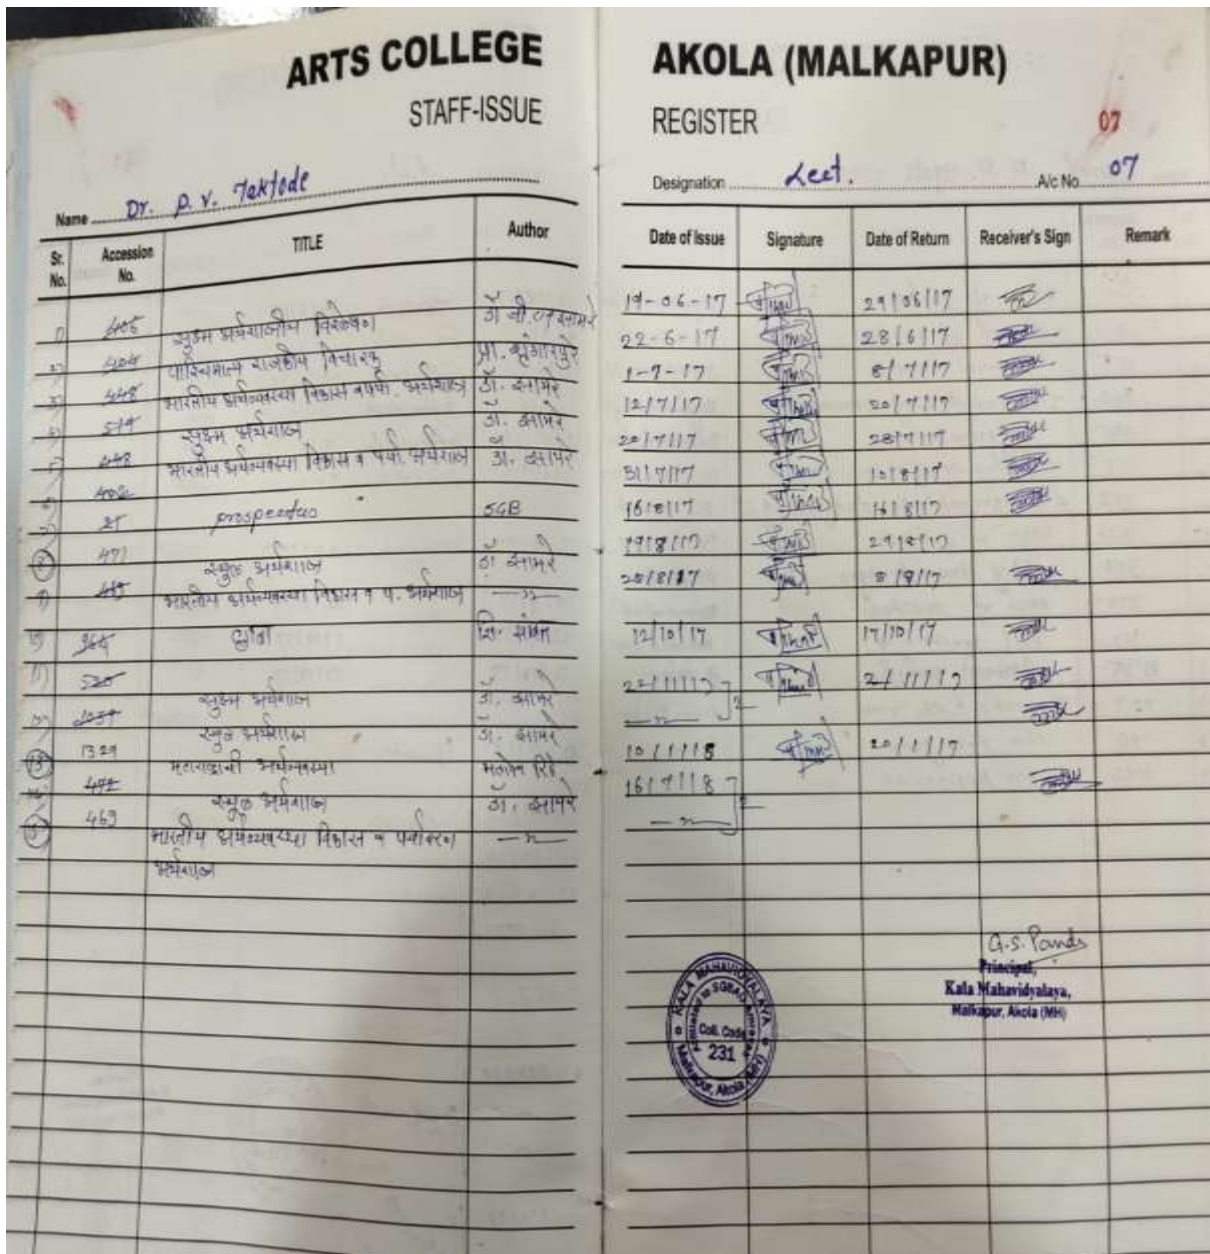 ARTS COLLEGE AKOLA (MALKAPUR)
STAFF-ISSUE REGISTER 07
Name Dr. P. V. Taktode Designation Lect. A/c No 07
Sr. No. Accession No. TITLE Author Date of Issue Signature Date of Return Receiver's Sign Remark
1) सुक्ष्म अर्थशास्त्रीय विश्लेषण 19-06-17 29/06/17
2) 404 पाश्चिमात्य राजकीय विचारवंत प्रा. 22-6-17 28/6/17
3) 448 भारतीय अर्थव्यवस्था विकास व पर्या. अर्थशास्त्र डॉ. झामरे 1-7-17 8/7/17
519 सुक्ष्म अर्थशास्त्र डॉ. झामरे 12/7/17 20/7/17
448 भारतीय अर्थव्यवस्था विकास व पर्या. अर्थशास्त्र डॉ. झामरे 20/7/17 28/7/17
31/7/17 10/8/17
21 prospectus SGB 16/8/17 16/8/17
471 स्थुल अर्थशास्त्र डॉ झामरे 19/8/17 29/8/17
भारतीय अर्थव्यवस्था विकास व प. अर्थशास्त्र —〃— 8/9/17
शि. 12/10/17 17/10/17
11) 520 सुक्ष्म अर्थशास्त्र डॉ. झामरे
स्थुल अर्थशास्त्र डॉ. झामरे —〃—
13) 1329 महाराष्ट्राची अर्थव्यवस्था 10/1/18 20/1/17
472 स्थुल अर्थशास्त्र डॉ. झामरे 16/7/18
469 भारतीय अर्थव्यवस्था विकास व पर्यावरण —〃— —〃—
अर्थशास्त्र
G.S. Pande
Principal,
Kala Mahavidyalaya,
Malkapur, Akola (MH)
KALA MAHAVIDYALAYA
Affiliated to SGBAU Amravati
Coll. Code
231
Malkapur, Akola (MH)